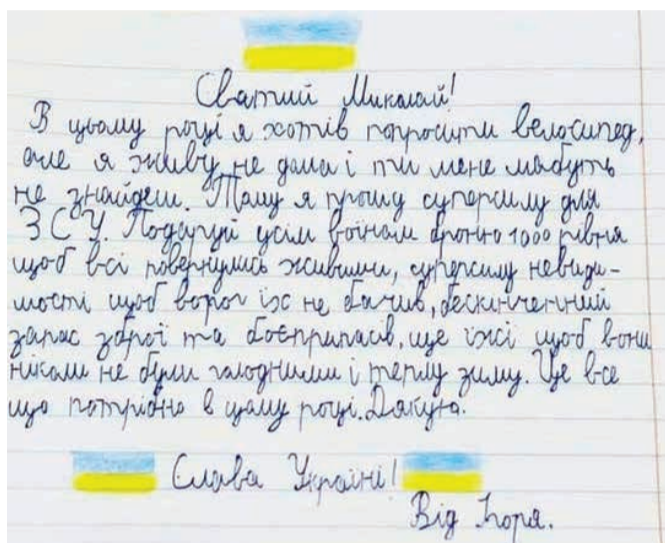 Святий Миколай!
В цьому році я хотів попросити велосипед,
але я живу не дома і ти мене мабуть
не знайдеш. Тому я прошу суперсилу для
ЗСУ. Подаруй усім воїнам броню 1000 рівня
щоб всі повернулись живими, суперсилу невиди-
мості щоб ворог їх не бачив, бескінченний
запас зброї та боєприпасів, ще їжі щоб вони
ніколи не були голодними і теплу зиму. Це все
що потрібно в цьому році. Дякую.
Слава Україні!
Від Ігоря.